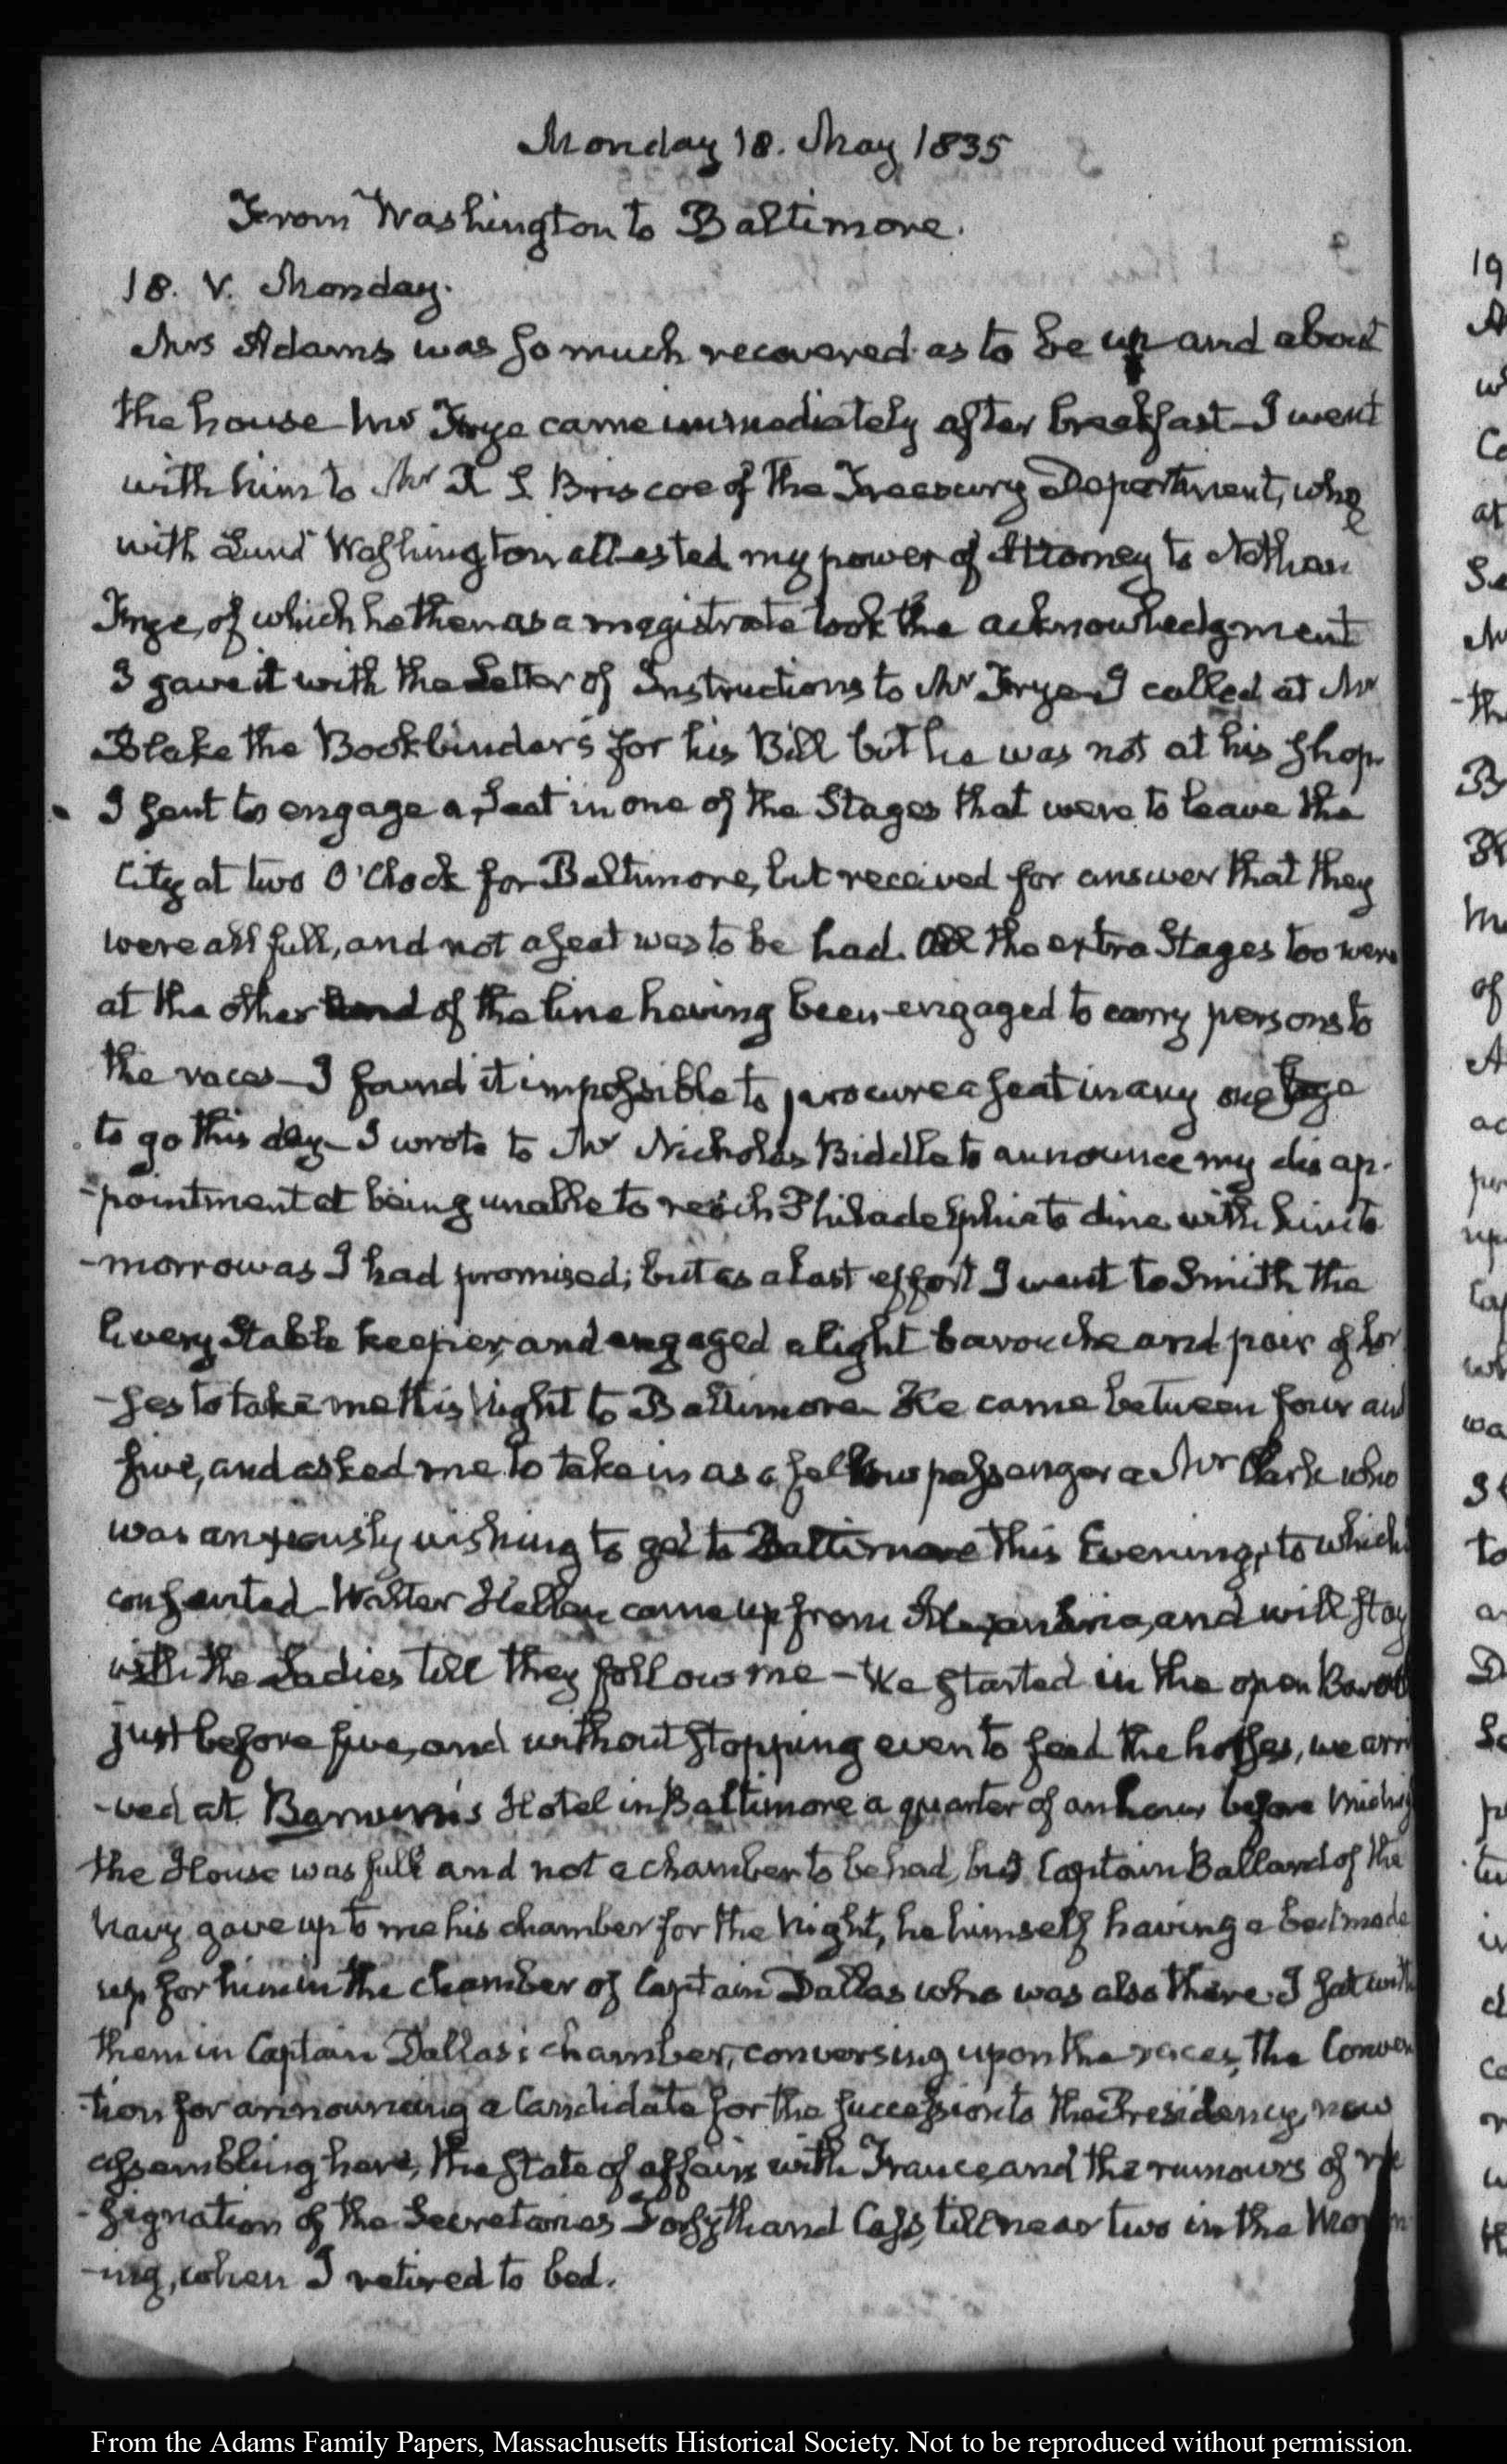 Monday 18. May 1835
From Washington to Baltimore.
18. V. Monday.
Mrs Adams was so much recovered as to be up and about
the house Mr Frye came immediately after breakfast — I went
with him to Mr R S Briscoe of the Treasury Department, who
with Lund Washington attested my power of Attorney to Nathan
Frye, of which he then as a magistrate took the acknowledgment
I gave it with the Letter of Instructions to Mr Frye — I called at Mr
Blake the Bookbinder's for his Bill but he was not at his shop.
I sent to engage a seat in one of the Stages that were to leave the
City at two O'Clock for Baltimore, but received for answer that they
were all full, and not a seat was to be had. All the extra Stages too were
at the other end of the line having been engaged to carry persons to
the races — I found it impossible to procure a seat in any
to go this day — I wrote to Mr Nicholas Biddle to announce my disap-
-pointment at being unable to reach Philadelphia to dine with him to
-morrow as I had promised; but as a last effort I went to Smith the
livery Stable keeper, and engaged a light barouche and pair of hor
-ses to take me this Night to Baltimore He came between four and
five, and asked me to take in as a fellow passenger a Mr Clark who
was anxiously wishing to get to Baltimore this Evening, to which
consented — Walter Hellen came up from Alexandria, and will stay
with the Ladies till they follow me — We started in the open
just before five, and without stopping even to feed the horses, we arri
-ved at Barnum's Hotel in Baltimore a quarter of an hour before
the House was full and not a chamber to be had, but Captain Ballard of the
Navy gave up to me his chamber for the Night, he himself having a bed made
up for him in the chamber of Captain Dallas who was also there. I sat with
them in Captain Dallas's chamber, conversing upon the races, the Conven
-tion for announcing a Candidate for the succession to the Presidency, now
assembling here, the state of affairs with France, and the rumours of re
-signation of the Secretaries Forsyth and Cass, till near two in the Morn
-ing, when I retired to bed.
From the Adams Family Papers, Massachusetts Historical Society. Not to be reproduced without permission.